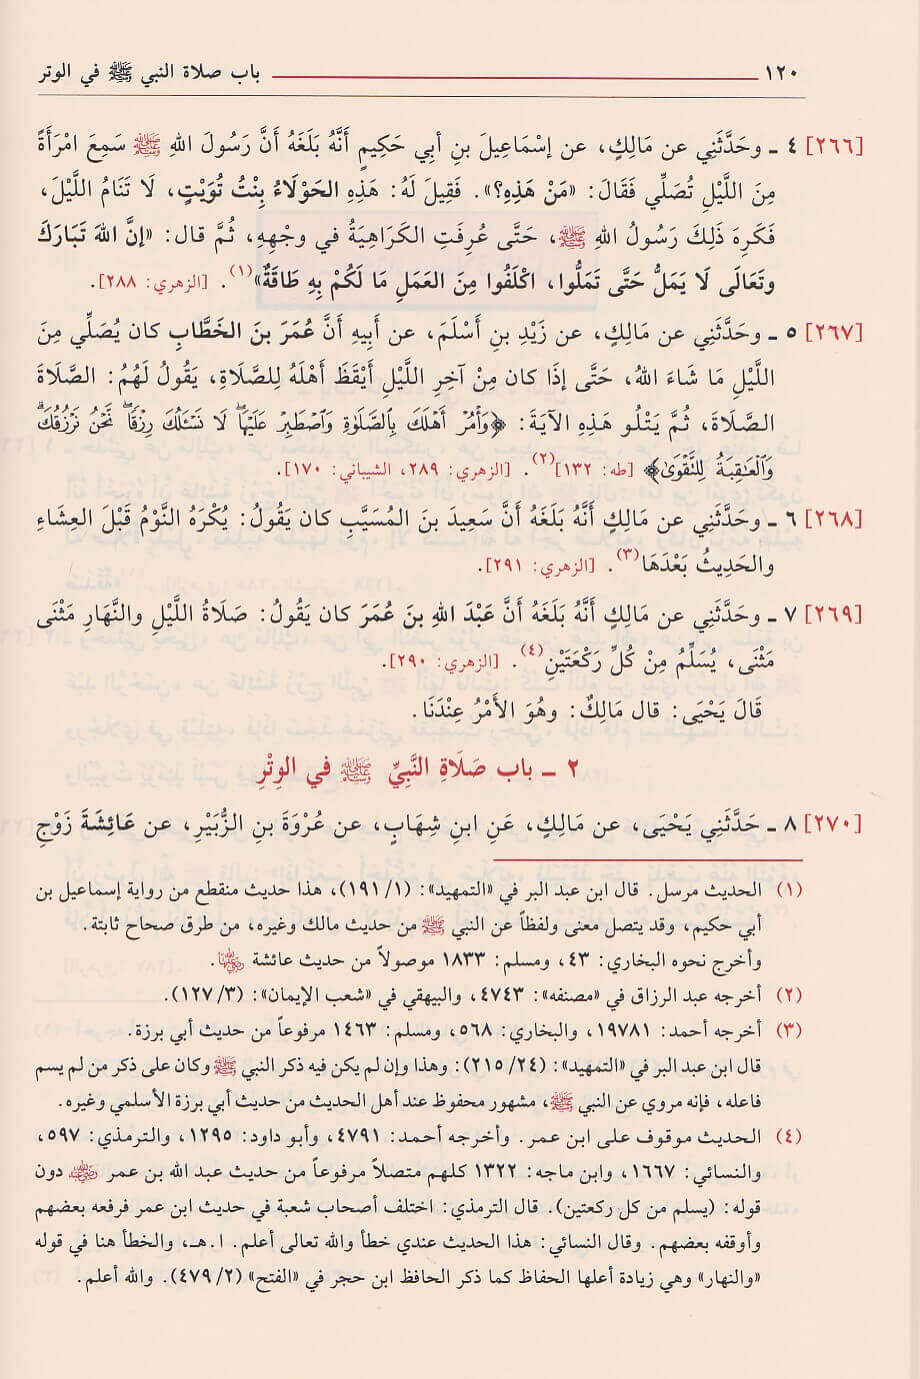 ١٢٠ باب صلاة النبي ﷺ في الوتر
[٢٦٦] ٤ ـ وحَدَّثَنِي عن مَالِكٍ، عن إسْمَاعِيلَ بنِ أبي حَكِيمٍ أَنَّهُ بَلَغَهُ أَنَّ رَسُولَ اللهِ ﷺ سَمِعَ امْرَأَةً
مِنَ اللَّيْلِ تُصَلِّي فَقَالَ: «مَنْ هَذِهِ؟». فَقِيلَ لَهُ: هَذِهِ الحَوْلَاءُ بِنْتُ تُوَيْتٍ، لَا تَنَامُ اللَّيْلَ،
فَكَرِهَ ذَلِكَ رَسُولُ اللهِ ﷺ، حَتَّى عُرِفَتِ الكَرَاهِيَةُ في وجْهِهِ، ثُمَّ قال: «إنَّ اللهَ تَبَارَكَ
وتَعَالَى لَا يَمَلُّ حَتَّى تَمَلُّوا، اكْلَفُوا مِنَ العَمَلِ مَا لَكُمْ بِهِ طَاقَةٌ»(١). [الزهري: ٢٨٨].
[٢٦٧] ٥ ـ وحَدَّثَنِي عن مَالِكٍ، عن زَيْدِ بنِ أَسْلَمَ، عن أَبِيهِ أَنَّ عُمَرَ بنَ الخَطَّابِ كان يُصَلِّي مِنَ
اللَّيْلِ مَا شَاءَ اللهُ، حَتَّى إذَا كان مِنْ آخِرِ اللَّيْلِ أَيْقَظَ أَهْلَهُ لِلصَّلَاةِ، يَقُولُ لَهُمُ: الصَّلَاةَ
الصَّلَاةَ، ثُمَّ يَتْلُو هَذِهِ الآيَةَ: ﴿وَأْمُرْ أَهْلَكَ بِالصَّلَوٰةِ وَاصْطَبِرْ عَلَيْهَاۖ لَا نَسْـَٔلُكَ رِزْقًاۖ نَّحْنُ نَرْزُقُكَۗ
وَالْعَٰقِبَةُ لِلتَّقْوَىٰ﴾ [طه: ١٣٢](٢). [الزهري: ٢٨٩، الشيباني: ١٧٠].
[٢٦٨] ٦ ـ وحَدَّثَنِي عن مَالِكٍ أَنَّهُ بَلَغَهُ أَنَّ سَعِيدَ بنَ المُسَيَّبِ كان يَقُولُ: يُكْرَهُ النَّوْمُ قَبْلَ العِشَاءِ
والحَدِيثُ بَعْدَهَا(٣). [الزهري: ٢٩١].
[٢٦٩] ٧ ـ وحَدَّثَنِي عن مَالِكٍ أَنَّهُ بَلَغَهُ أَنَّ عَبْدَ اللهِ بنَ عُمَرَ كان يَقُولُ: صَلَاةُ اللَّيْلِ والنَّهَارِ مَثْنَى
مَثْنَى، يُسَلِّمُ مِنْ كُلِّ رَكْعَتَيْنِ(٤). [الزهري: ٢٩٠].
قَالَ يَحْيَى: قال مَالِكٌ: وهُوَ الأَمْرُ عِنْدَنَا.
٢ ـ باب صَلَاةِ النَّبِيِّ ﷺ في الوِتْرِ
[٢٧٠] ٨ ـ حَدَّثَنِي يَحْيَى، عن مَالِكٍ، عَنِ ابنِ شِهَابٍ، عن عُرْوَةَ بنِ الزُّبَيْرِ، عن عَائِشَةَ زَوْجِ
(١) الحديث مرسل. قال ابن عبد البر في «التمهيد»: (١/ ١٩١)، هذا حديث منقطع من رواية إسماعيل بن
أبي حكيم، وقد يتصل معنى ولفظاً عن النبي ﷺ من حديث مالك وغيره، من طرق صحاح ثابتة.
وأخرج نحوه البخاري: ٤٣، ومسلم: ١٨٣٣ موصولاً من حديث عائشة رضي الله عنها.
(٢) أخرجه عبد الرزاق في «مصنفه»: ٤٧٤٣، والبيهقي في «شعب الإيمان»: (٣/ ١٢٧).
(٣) أخرجه أحمد: ١٩٧٨١، والبخاري: ٥٦٨، ومسلم: ١٤٦٣ مرفوعاً من حديث أبي برزة.
قال ابن عبد البر في «التمهيد»: (٢٤/ ٢١٥): وهذا وإن لم يكن فيه ذكر النبي ﷺ وكان على ذكر من لم يسم
فاعله، فإنه مروي عن النبي ﷺ، مشهور محفوظ عند أهل الحديث من حديث أبي برزة الأسلمي وغيره.
(٤) الحديث موقوف على ابن عمر. وأخرجه أحمد: ٤٧٩١، وأبو داود: ١٢٩٥، والترمذي: ٥٩٧،
والنسائي: ١٦٦٧، وابن ماجه: ١٣٢٢ كلهم متصلاً مرفوعاً من حديث عبد الله بن عمر رضي الله عنه دون
قوله: (يسلم من كل ركعتين). قال الترمذي: اختلف أصحاب شعبة في حديث ابن عمر فرفعه بعضهم
وأوقفه بعضهم. وقال النسائي: هذا الحديث عندي خطأ والله تعالى أعلم. ا.هـ، والخطأ هنا في قوله
«والنهار» وهي زيادة أعلها الحفاظ كما ذكر الحافظ ابن حجر في «الفتح» (٢/ ٤٧٩). والله أعلم.